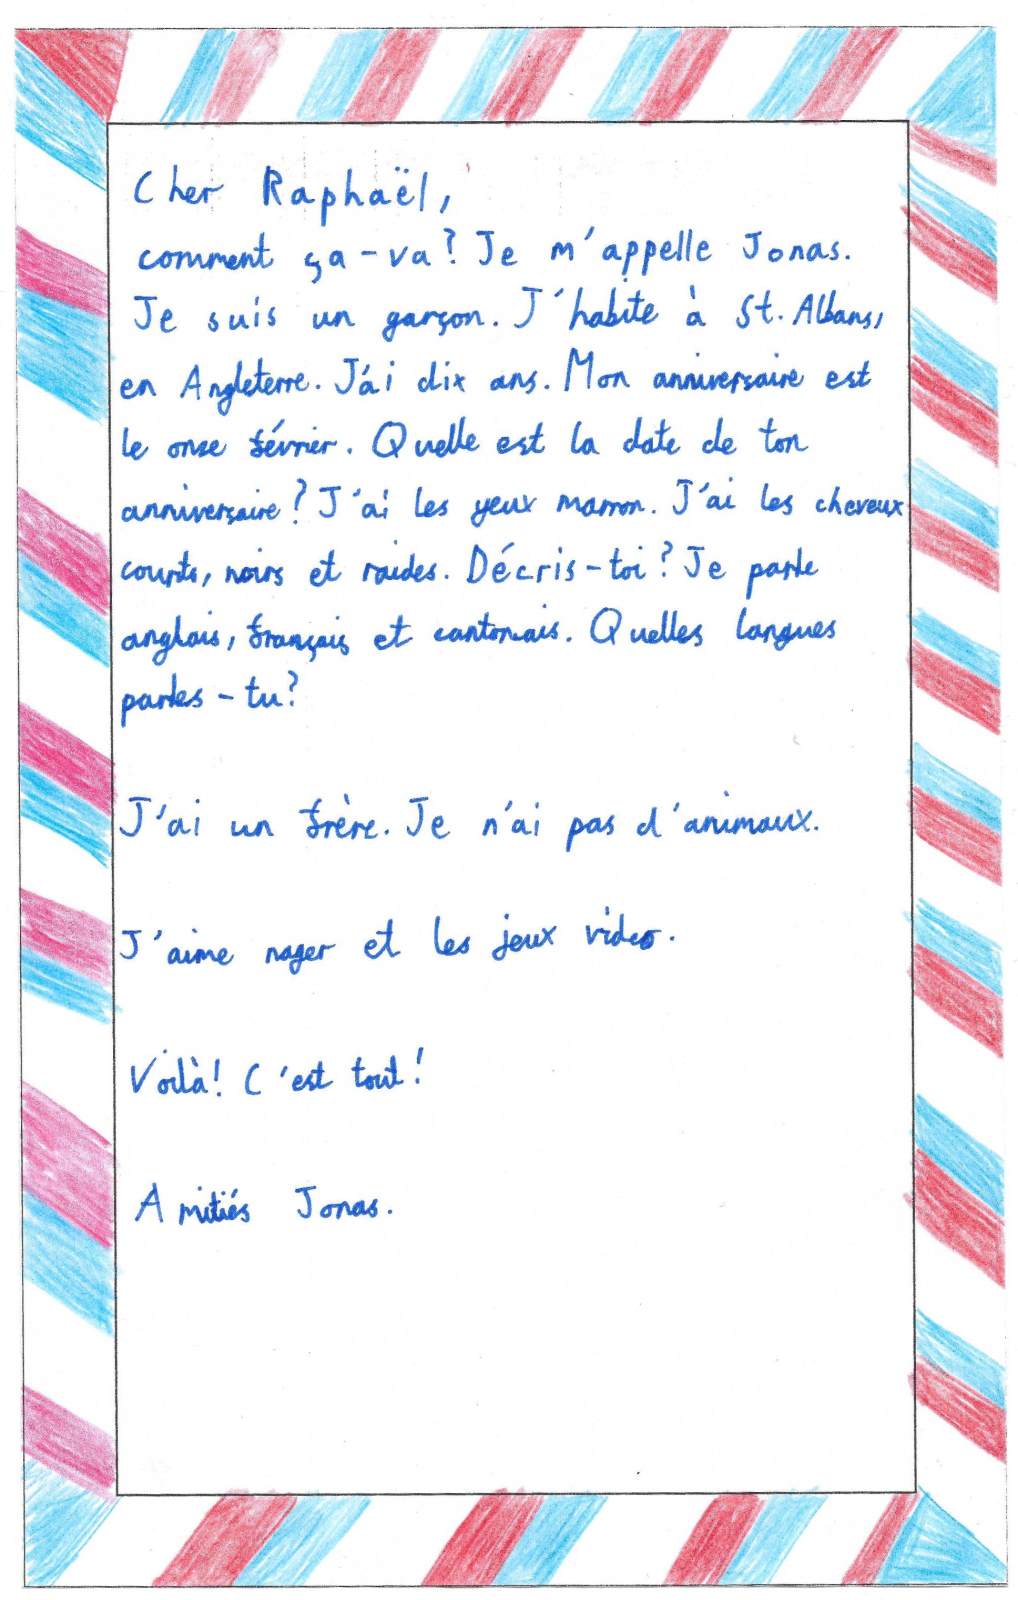 Cher Raphaël,
comment ça-va? Je m'appelle Jonas.
Je suis un garçon. J'habite à St. Albans,
en Angleterre. J'ai dix ans. Mon anniversaire est
le onze février. Quelle est la date de ton
anniversaire? J'ai les yeux marron. J'ai les cheveux
courts, noirs et raides. Décris-toi? Je parle
anglais, français et cantonais. Quelles langues
parles-tu?
J'ai un frère. Je n'ai pas d'animaux.
J'aime nager et les jeux video.
Voilà! C'est tout!
Amitiés Jonas.